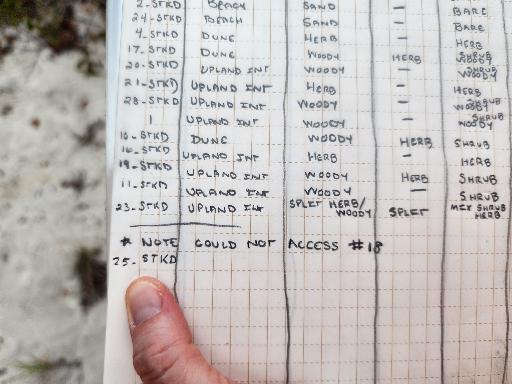 2-STKD BEACH SAND — BARE
24-STKD BEACH SAND — BARE
4-STKD DUNE HERB — HERB
17-STKD DUNE WOODY HERB SHRUB WOODY
20-STKD UPLAND INT WOODY — SHRUB WOODY
21-STKD UPLAND INT HERB — HERB
28-STKD UPLAND INT WOODY — SHRUB WOODY
1 UPLAND INT WOODY — SHRUB WOODY
10-STKD DUNE WOODY HERB SHRUB
16-STKD UPLAND INT HERB — HERB
19-STKD UPLAND INT WOODY HERB SHRUB
11-STKD UPLAND INT WOODY — SHRUB
23-STKD UPLAND INT SPLIT HERB/WOODY SPLIT MIX SHRUB HERB
* NOTE COULD NOT ACCESS #18
25-STKD